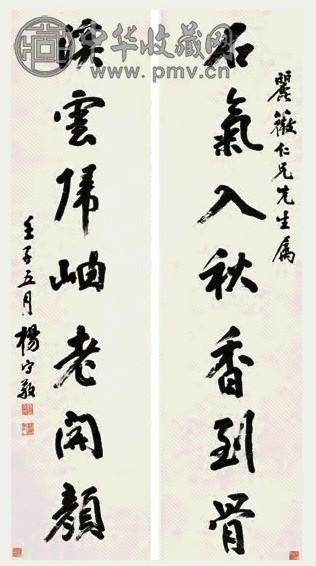 中华收藏网
www.pmv.cn
薇仁兄先生属
石氣入秋香到骨
雲歸岫老開顏
壬子五月楊守敬